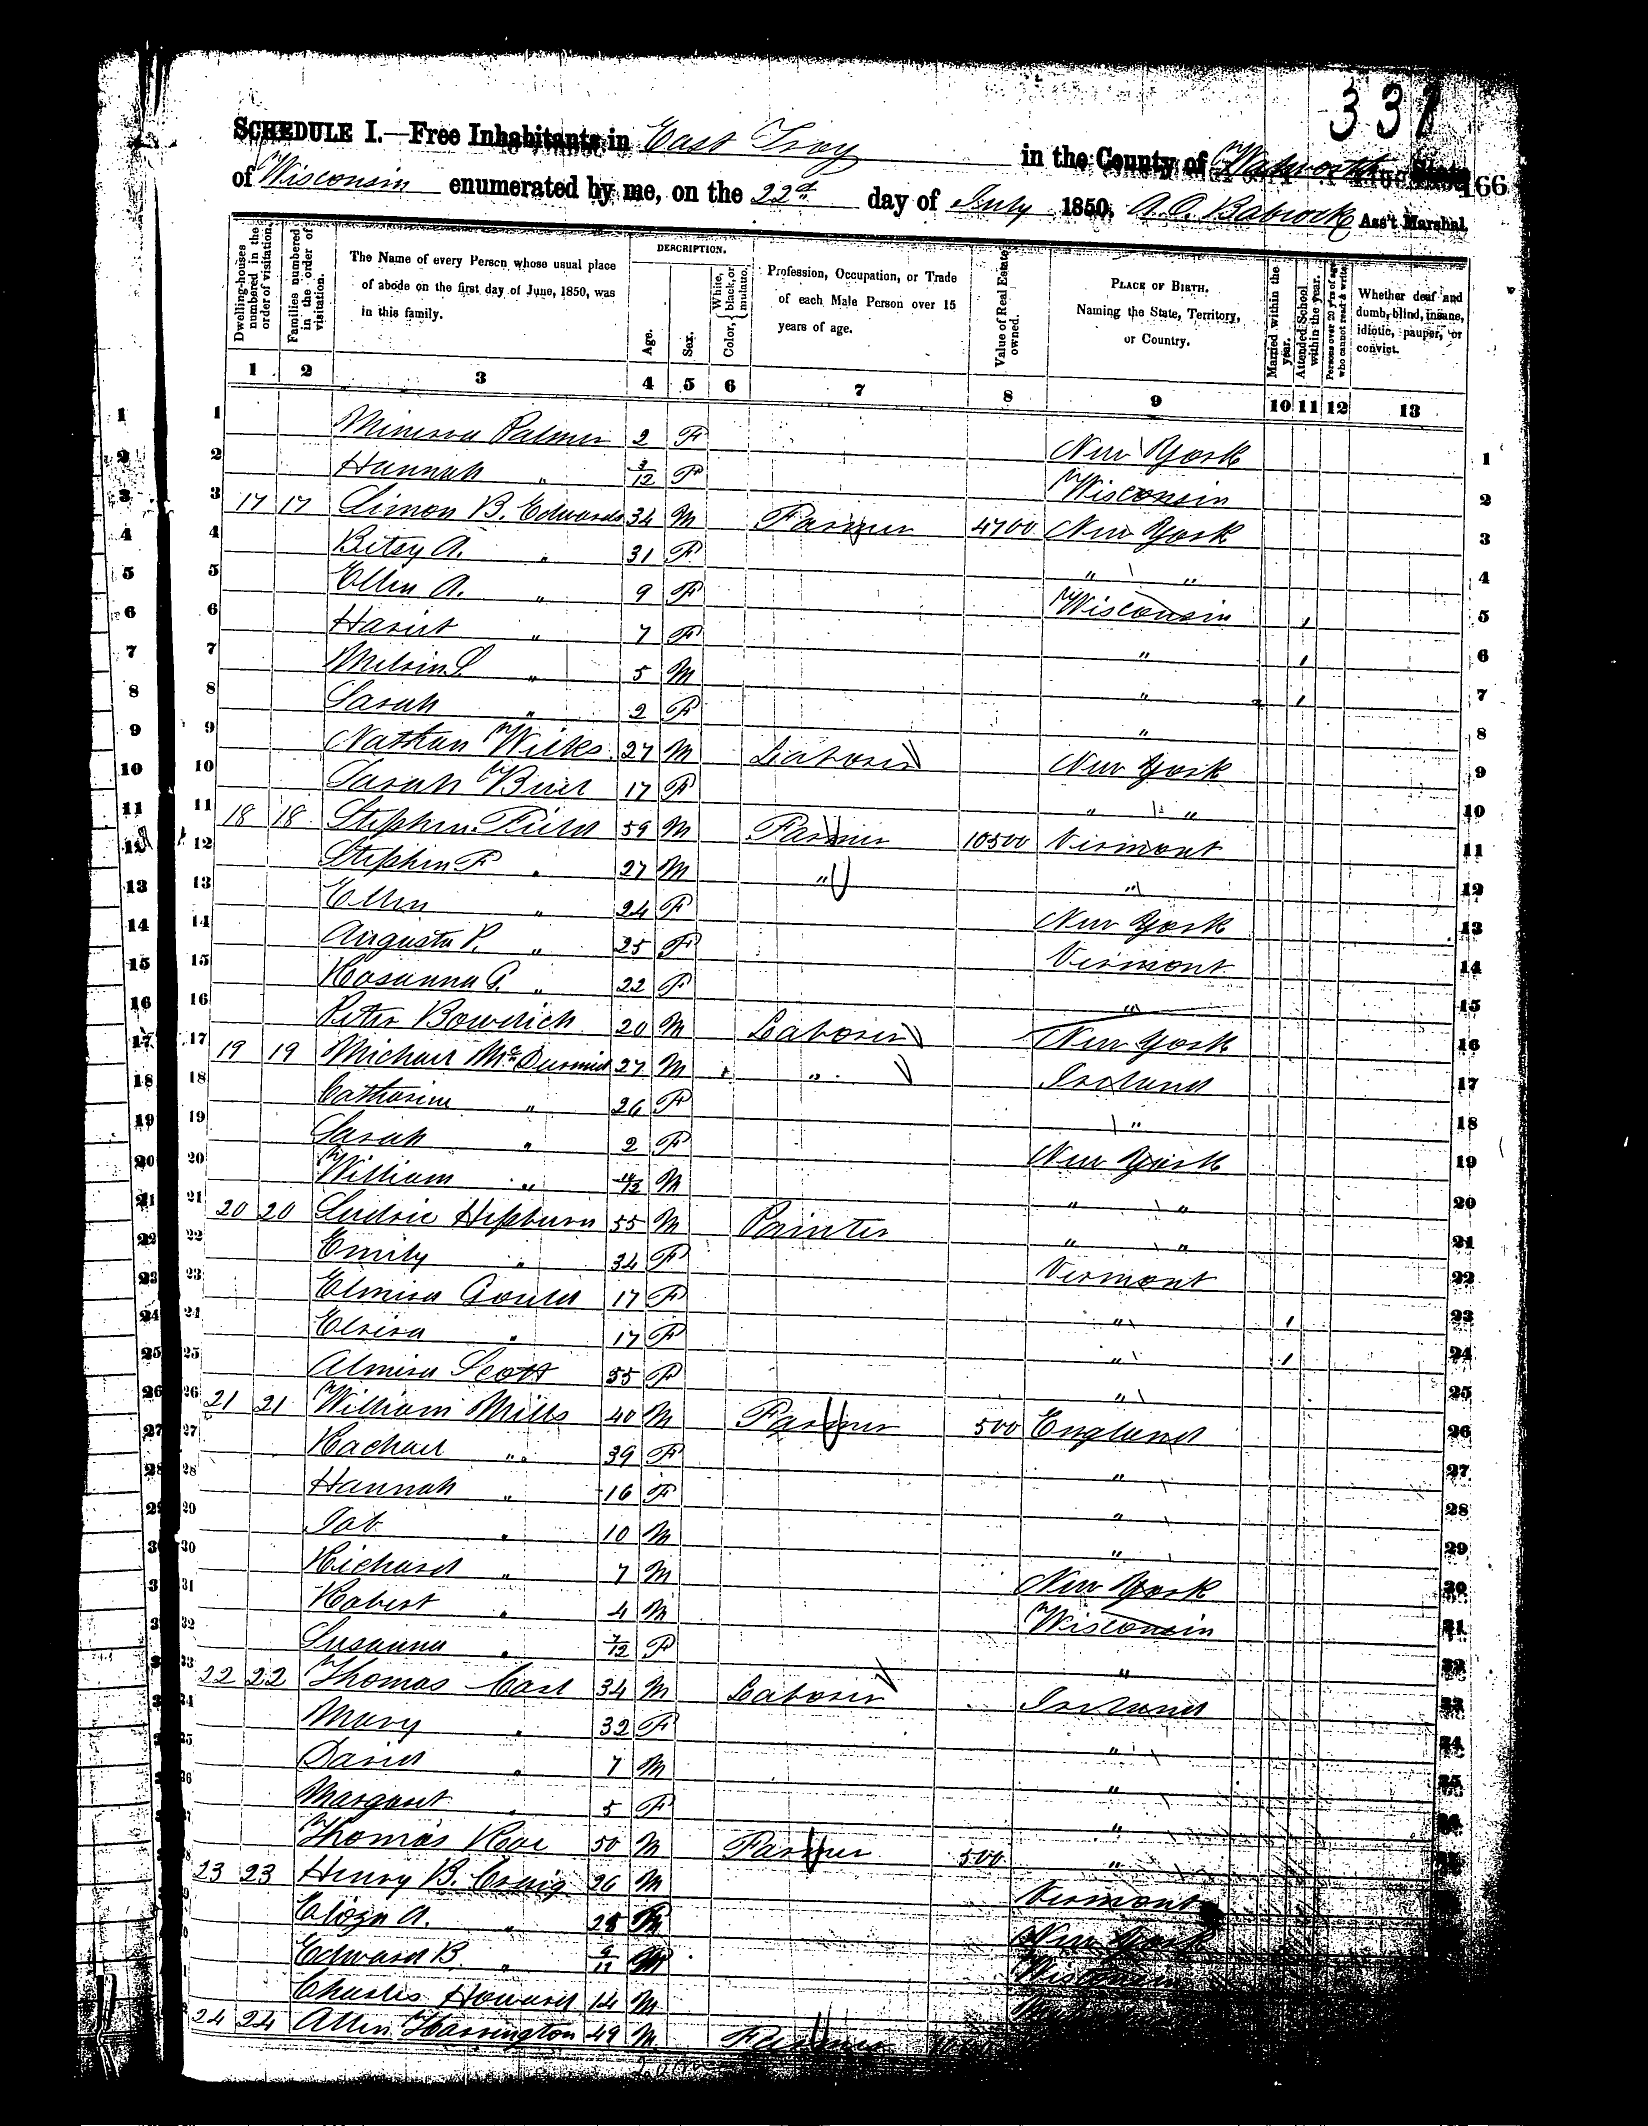 331
SCHEDULE I.—Free Inhabitants in East Troy in the County of Walworth State
of Wisconsin enumerated by me, on the 22d day of July 1850. A.O. Babcock Ass't Marshal. 166
Dwelling-houses numbered in the order of visitation.
Families numbered in the order of visitation.
The Name of every Person whose usual place of abode on the first day of June, 1850, was in this family.
DESCRIPTION.
Age.
Sex.
Color, White, black, or mulatto.
Profession, Occupation, or Trade of each Male Person over 15 years of age.
Value of Real Estate owned.
PLACE OF BIRTH. Naming the State, Territory, or Country.
Married within the year.
Attended School within the year.
Persons over 20 y'rs of age who cannot read & write.
Whether deaf and dumb, blind, insane, idiotic, pauper, or convict.
1 2 3 4 5 6 7 8 9 10 11 12 13
1 Minerva Palmer 2 F New York 1
2 Hannah " 3/12 F Wisconsin 2
3 17 17 Simon B. Edwards 34 M Farmer 4700 New York 3
4 Betsy A. " 31 F " " 4
5 Ellen A. " 9 F Wisconsin 1 5
6 Hariet " 7 F " 1 6
7 Melvin S. " 5 M " 1 7
8 Sarah " 2 F " 8
9 Nathan Wicks 27 M Laborer New York 9
10 Sarah 17 F " " 10
11 18 18 Stephen Field 59 M Farmer 10500 Vermont 11
12 Stephen F " 27 M " " 12
13 Ellen " 24 F New York 13
14 Augusta P. " 25 F Vermont 14
15 Rosanna G. " 22 F " 15
16 Peter Bowdich 20 M Laborer New York 16
17 19 19 Michael McDermid 27 M " Ireland 17
18 Catharine " 26 F " 18
19 Sarah " 2 F New York 19
20 William " M " " 20
21 20 20 Hepburn 55 M Painter " " 21
22 Emily " 34 F Vermont 22
23 Elmira Gould 17 F " 1 23
24 Elvira " 17 F " 1 24
25 Almira Scott 55 F " 25
26 21 21 William Mills 40 M Farmer 500 England 26
27 Rachael " 39 F " 27
28 Hannah " 16 F " 28
29 Job " 10 M " 29
30 Richard " 7 M New York 30
31 Robert " 4 M Wisconsin 31
32 Susanna " 7/12 F " 32
33 22 22 Thomas 34 M Laborer Ireland 33
34 Mary " 32 F " 34
35 David " 7 M " 35
36 Margaret " 5 F "
Thomas 50 M Farmer 500 "
23 23 Henry B. Craig 26 M Vermont
Eliza A. " 28 F New York
Edward B. " M Wisconsin
Charles Howard 14 M
24 24 Allen Harrington 49 M Farmer